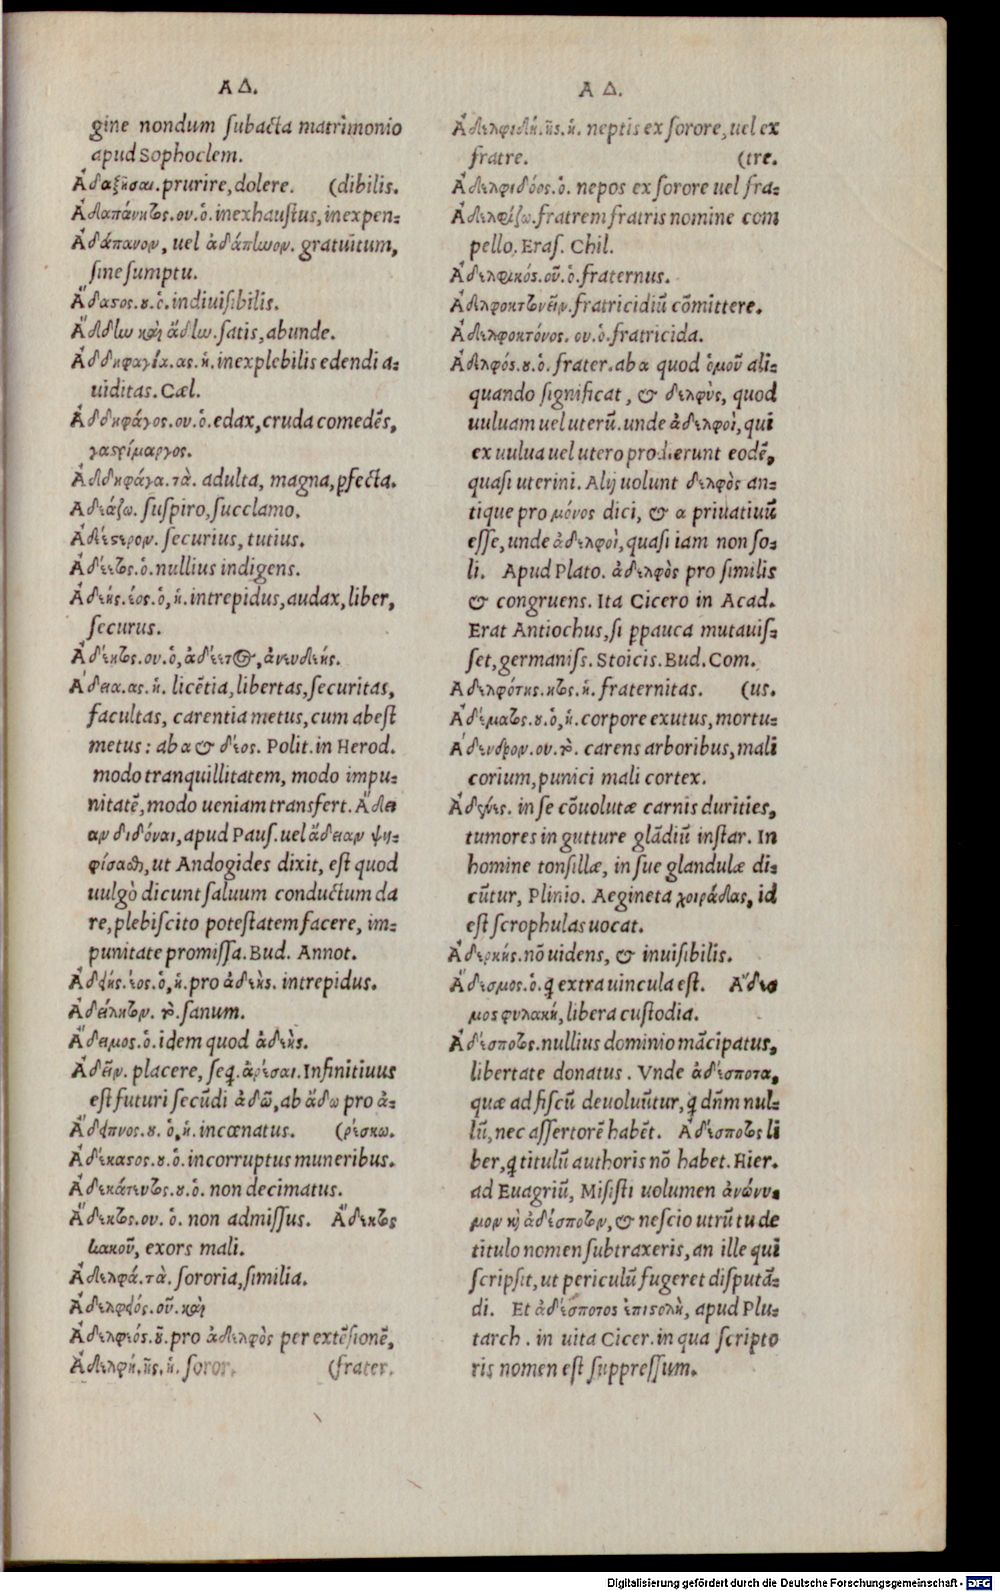 ΑΔ.
gine nondum subacta matrimonio
apud Sophoclem.
Ἀδαξῆσαι. prurire, dolere. (dibilis.
Ἀδαπάνητος. ου. ὁ. inexhaustus, inexpen-
Ἀδάπανον, uel ἀδάπανον. gratuitum,
sine sumptu.
Ἄδαστος. ου. ὁ. indiuisibilis.
Ἄδδην καὶ ἄδην. satis, abunde.
Ἀδδηφαγία. ας. ἡ. inexplebilis edendi a-
uiditas. Cæl.
Ἀδδηφάγος. ου. ὁ. edax, cruda comedẽs,
γαστρίμαργος.
Ἀδδηφάγα. τὰ. adulta, magna, ꝑfecta.
Ἀδεάζω. suspiro, succlamo.
Ἀδεέστερον. securius, tutius.
Ἀδέετος. ὁ. nullius indigens.
Ἀδεής. έος. ὁ, ἡ. intrepidus, audax, liber,
securus.
Ἀδέητος. ου. ὁ, ἀδέετος, ἀνενδεής.
Ἄδεια. ας. ἡ. licẽtia, libertas, securitas,
facultas, carentia metus, cum abest
metus: ab α & δέος. Polit. in Herod.
modo tranquillitatem, modo impu-
nitatẽ, modo ueniam transfert. Ἄδει
αν διδόναι, apud Paus. uel ἄδειαν ψη-
φίσασθαι, ut Andogides dixit, est quod
uulgò dicunt saluum conductum da
re, plebiscito potestatem facere, im-
punitate promissa. Bud. Annot.
Ἀδειής. έος. ὁ, ἡ. pro ἀδεὴς. intrepidus.
Ἀδείλητον. τὸ. sanum.
Ἄδειμος. ὁ. idem quod ἀδεὴς.
Ἀδεῖν. placere, seq̃. ἀρέσαι. Infinitiuus
est futuri secũdi ἀδῶ, ab ἄδω pro ἀ-
Ἄδειπνος. ου. ὁ, ἡ. incœnatus. (ρέσκω.
Ἀδέκαστος. ου. ὁ. incorruptus muneribus.
Ἀδεκάτευτος. ου. ὁ. non decimatus.
Ἄδεκτος. ου. ὁ. non admissus. Ἄδεκτος
κακοῦ, exors mali.
Ἀδελφά. τὰ. sororia, similia.
Ἀδελφειός. οῦ. καὶ
Ἀδελφεός. οῦ. pro ἀδελφὸς per extẽsionẽ,
Ἀδελφή. ῆς. ἡ. soror. (frater.
Α Δ.
Ἀδελφιδῆ. ῆς. ἡ. neptis ex sorore, uel ex
fratre. (tre.
Ἀδελφιδόος. ὁ. nepos ex sorore uel fra-
Ἀδελφίζω. fratrem fratris nomine com
pello. Eras. Chil.
Ἀδελφικός. οῦ. ὁ. fraternus.
Ἀδελφοκτονεῖν. fratricidiũ cõmittere.
Ἀδελφοκτόνος. ου. ὁ. fratricida.
Ἀδελφός. οῦ. ὁ. frater. ab α quod ὁμοῦ ali-
quando significat, & δελφὺς, quod
uuluam uel uterũ. unde ἀδελφοὶ, qui
ex uulua uel utero prodierunt eodẽ,
quasi uterini. Alij uolunt δελφὸς an-
tique pro μόνος dici, & α priuatiuũ
esse, unde ἀδελφοὶ, quasi iam non so-
li. Apud Plato. ἀδελφὸς pro similis
& congruens. Ita Cicero in Acad.
Erat Antiochus, si ꝑpauca mutauis-
set, germaniss. Stoicis. Bud. Com.
Ἀδελφότης. ητος. ἡ. fraternitas. (us.
Ἀδέματος. ου. ὁ, ἡ. corpore exutus, mortu-
Ἄδενδρον. ου. τὸ. carens arboribus, mali
corium, punici mali cortex.
Ἀδένες. in se cõuolutæ carnis durities,
tumores in gutture glãdiũ instar. In
homine tonsillæ, in sue glandulæ di-
cũtur, Plinio. Aegineta χοιράδας, id
est scrophulas uocat.
Ἀδερκής. nõ uidens, & inuisibilis.
Ἄδεσμος. ὁ. q̃ extra uincula est. Ἄδεσ
μος φυλακή, libera custodia.
Ἀδέσποτος. nullius dominio mãcipatus,
libertate donatus. Vnde ἀδέσποτα,
quæ ad fiscũ deuoluũtur, q̃ dñm nul-
lũ, nec assertorẽ habẽt. Ἀδέσποτος li
ber, q̃ titulũ authoris nõ habet. Hier.
ad Euagriũ, Misisti uolumen ἀνώνυ-
μον καὶ ἀδέσποτον, & nescio utrũ tu de
titulo nomen subtraxeris, an ille qui
scripsit, ut periculũ fugeret disputã-
di. Et ἀδέσποτος ἐπιστολὴ, apud Plu-
tarch. in uita Cicer. in qua scripto
ris nomen est suppressum.
Digitalisierung gefördert durch die Deutsche Forschungsgemeinschaft - DFG